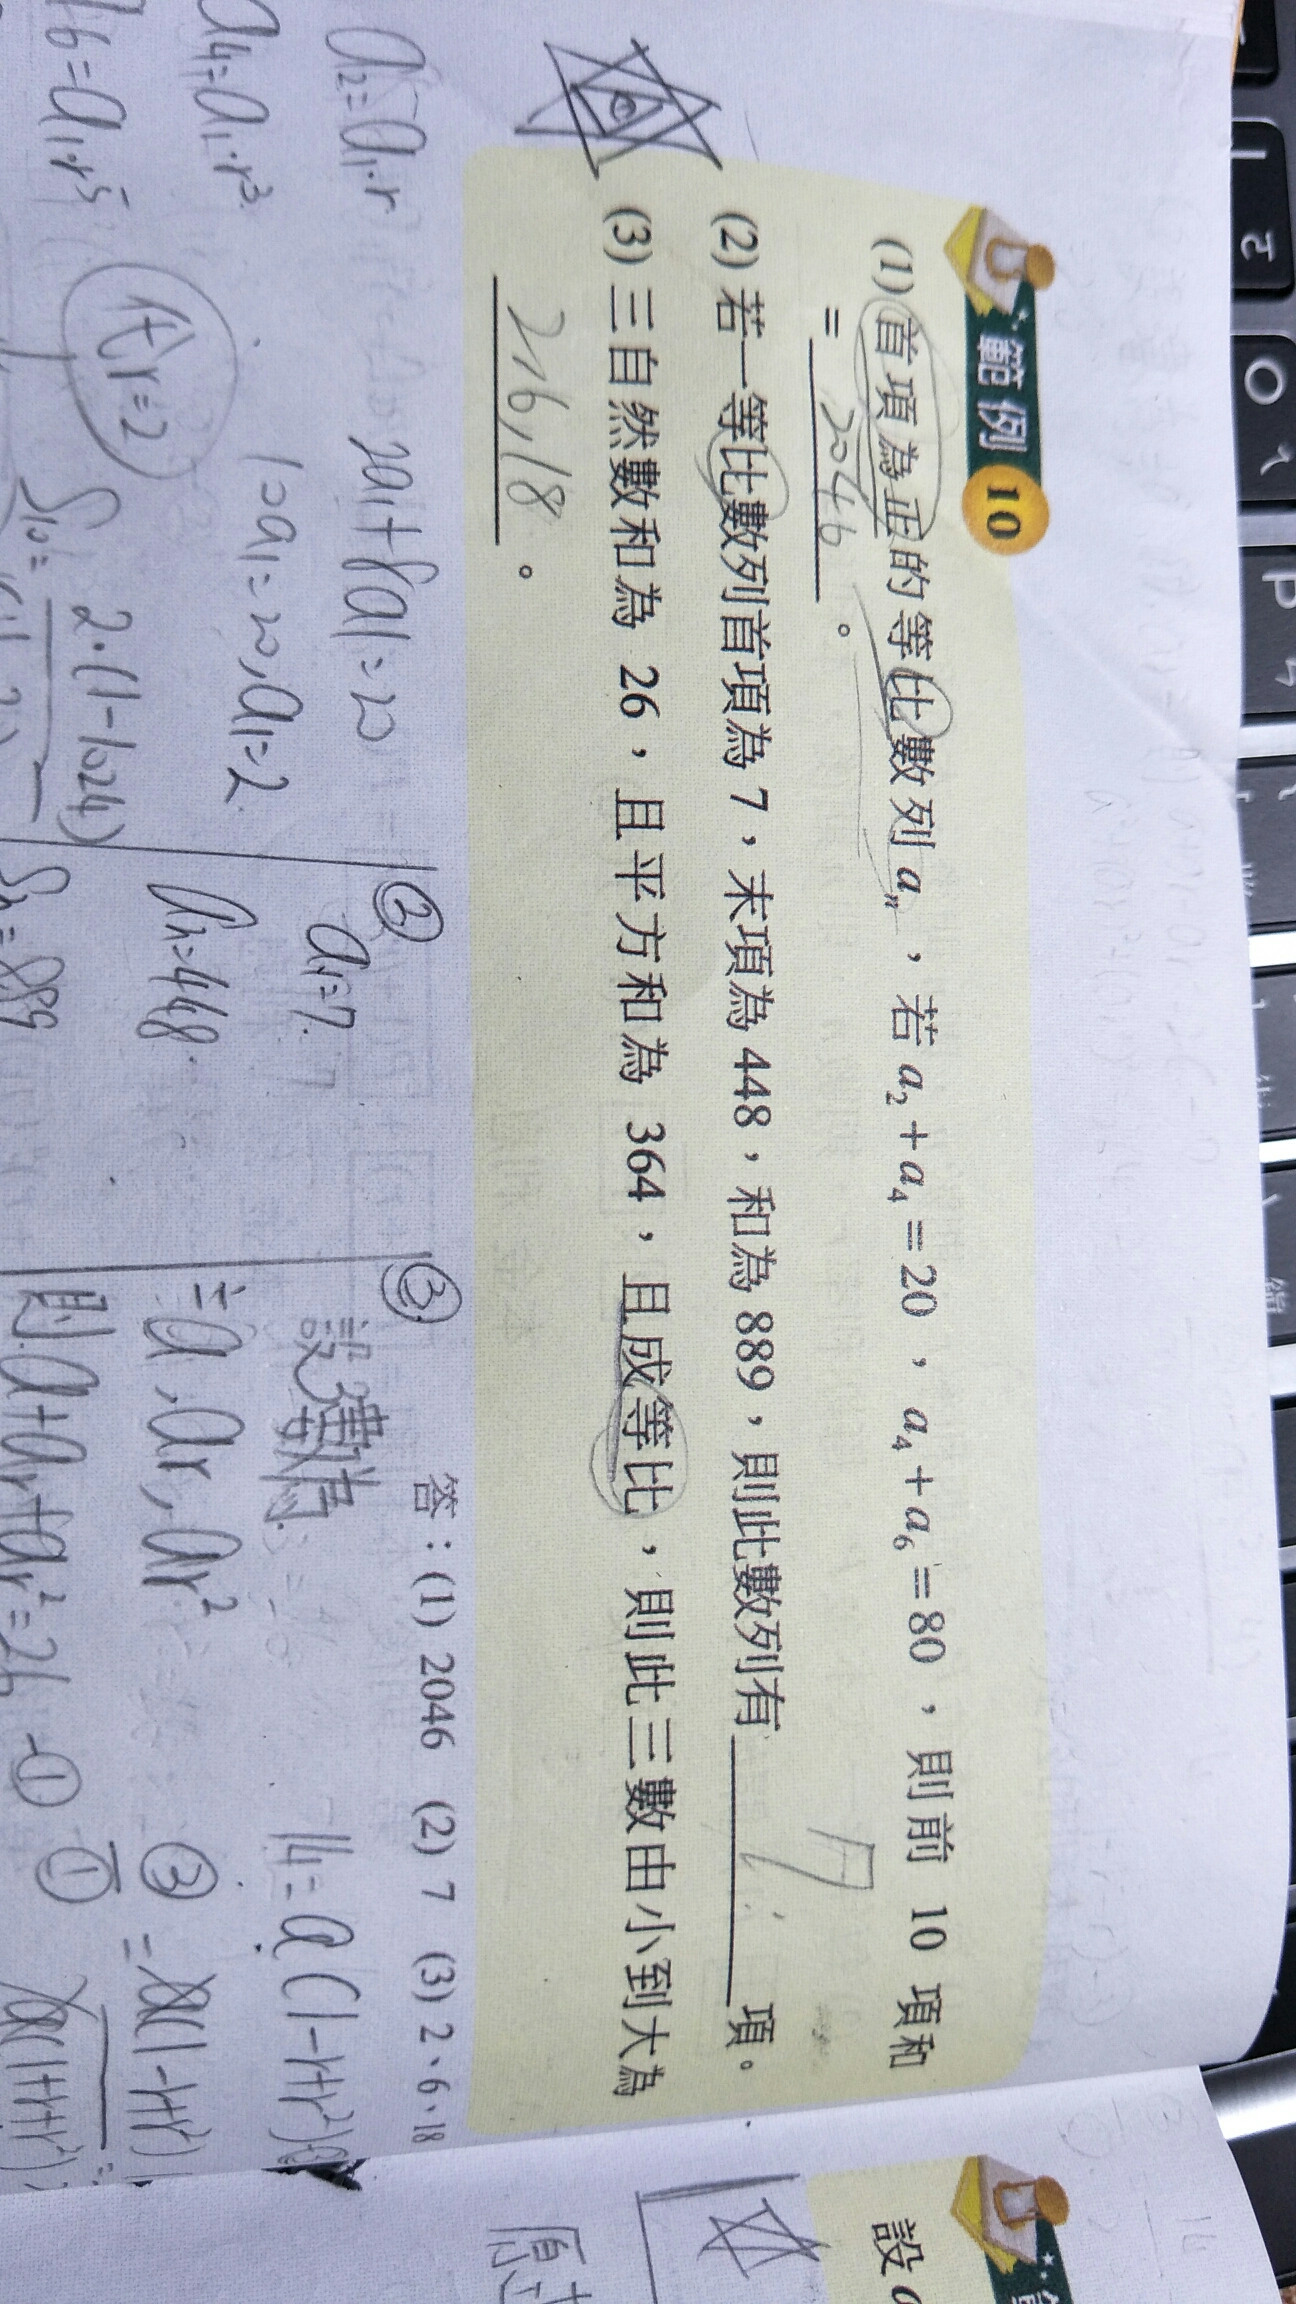 範例 10
(1) 首項為正的等比數列 aₙ，若 a₂＋a₄＝20，a₄＋a₆＝80，則前 10 項和
＝ 2046 。
(2) 若一等比數列首項為 7，末項為 448，和為 889，則此數列有 7 項。
(3) 三自然數和為 26，且平方和為 364，且成等比，則此三數由小到大為
2,6,18 。
答：(1) 2046 (2) 7 (3) 2、6、18
a₂=a₁·r
a₄=a₁·r³
a₆=a₁·r⁵
代r=2
2a₁+8a₁=20
10a₁=20, a₁=2
S₁₀=
2·(1-1024)
②
a₁=7
aₙ=448
Sₙ=889
③
設三數為
=a, ar, ar²
則 a+ar+ar²=26 -①
14=a(1-r+r²)
設a